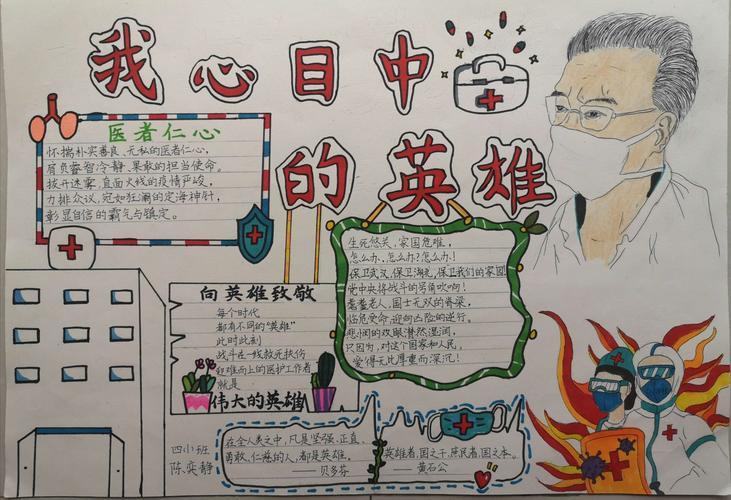 我心目中
的英雄
医者仁心
怀揣朴实善良、无私的医者仁心,
肩负睿智冷静、果敢的担当使命。
拨开迷雾,直面火线的疫情严峻,
力排众议,宛如狂澜的定海神针,
彰显自信的霸气与镇定。
生死悠关、家国危难,
怎么办、怎么办?怎么办!
保卫武汉,保卫湖北,保卫我们的家园
党中央将战斗的号角吹响!
耄耋老人,国士无双的脊梁,
临危受命,迎向凶险的逆行。
悲悯的双眼潸然湿润,
只因为,对这个国家和人民,
爱得无比厚重而深沉!
向英雄致敬
每个时代
都有不同的“英雄”
此时此刻
战斗在一线救死扶伤
和难而上的医护工作者
就是
伟大的英雄
四小班
陈奕静
在全人类之中,凡是坚强、正直、
勇敢、仁慈的人,都是英雄。
——贝多芬
英雄者,国之干,庶民者,国之本。
——黄石公